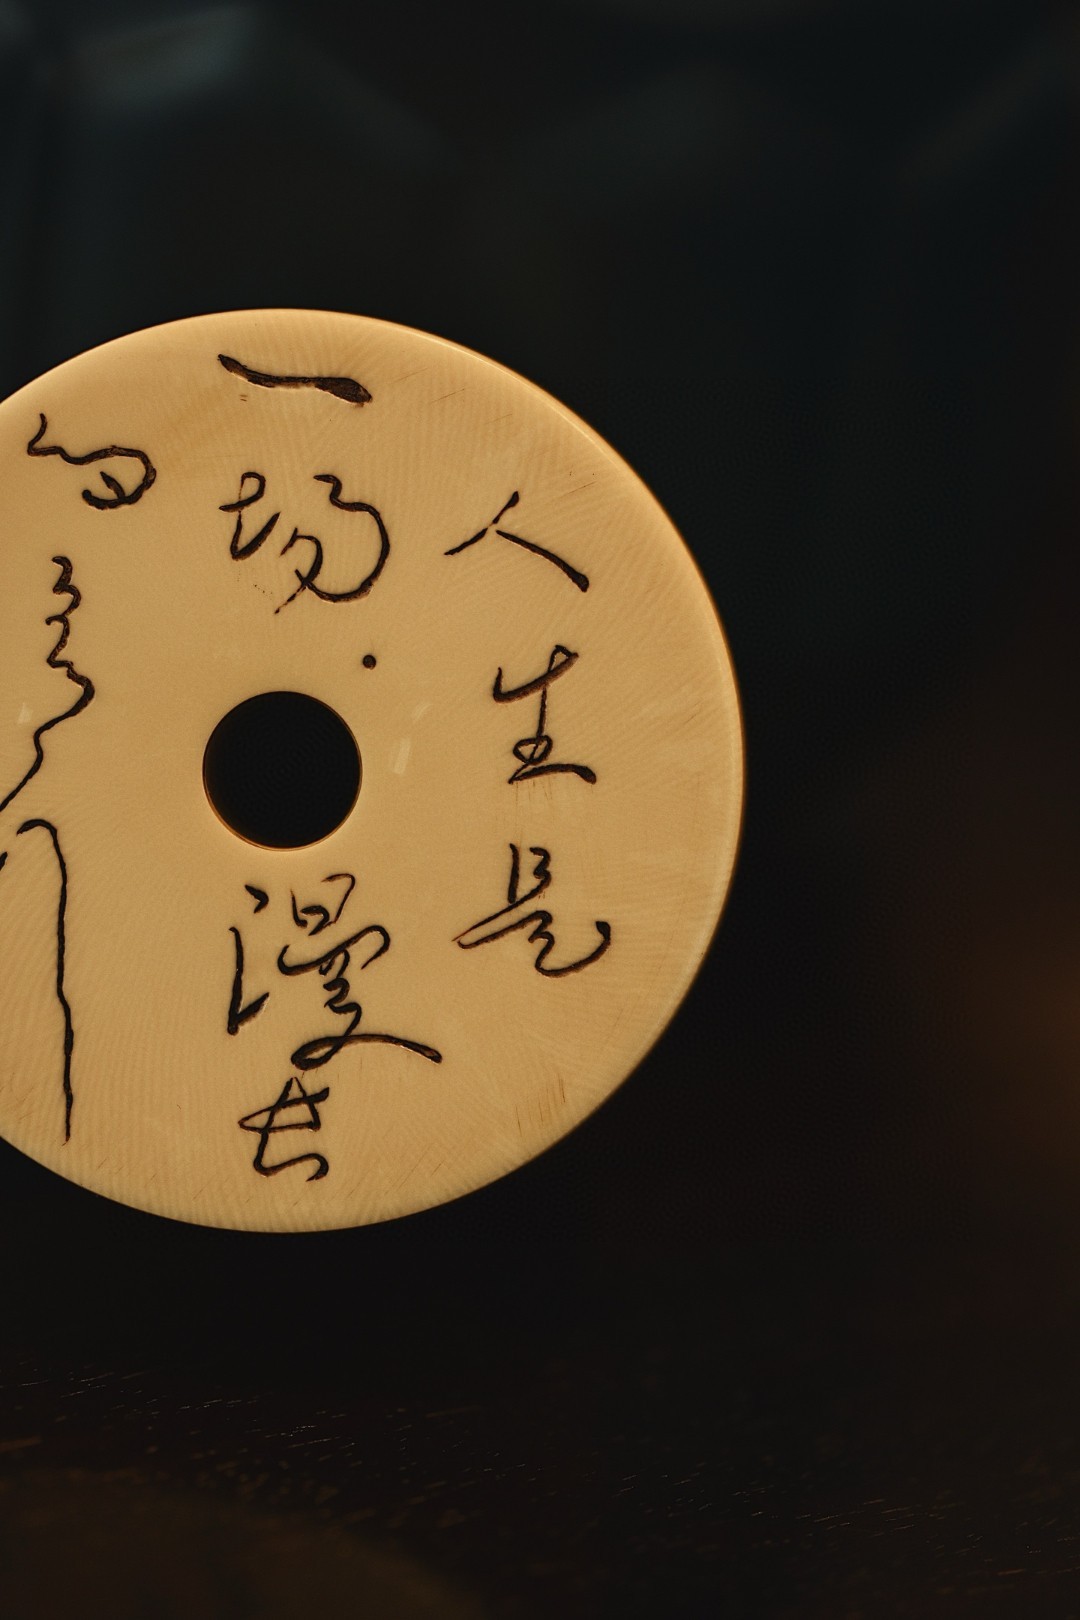 人生是
一场漫长
的